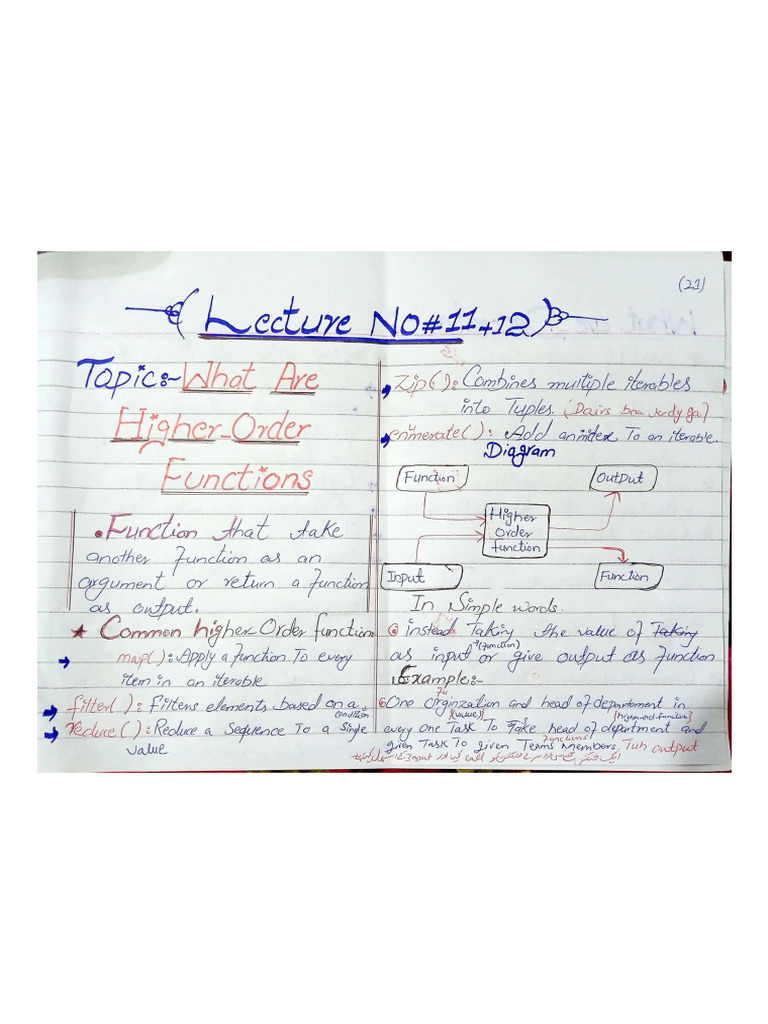 (21)
Lecture No#11+12
Topic:- What Are
Higher-Order
Functions
• Function that take
another function as an
argument or return a function
as output.
★ Common higher Order function
map(): Apply a function To every
item in an iterable
filter(): Filters elements based on a condition
reduce(): Reduce a Sequence To a Single
value
Zip(): Combines multiple iterables
into Tuples. (Pairs bna kr dy ga)
enumerate(): Add an index To an iterable.
Diagram
Function
OutPut
Higher
Order
function
Input
Function
In Simple words.
Instead Taking the value of Taking
as input (function) or give output as function
Example:-
One Orginzation and head of departement in
(value) (higher-ord-function)
every one Task To Take head of department and
given Task To given Teams Members, Tuh output
functions